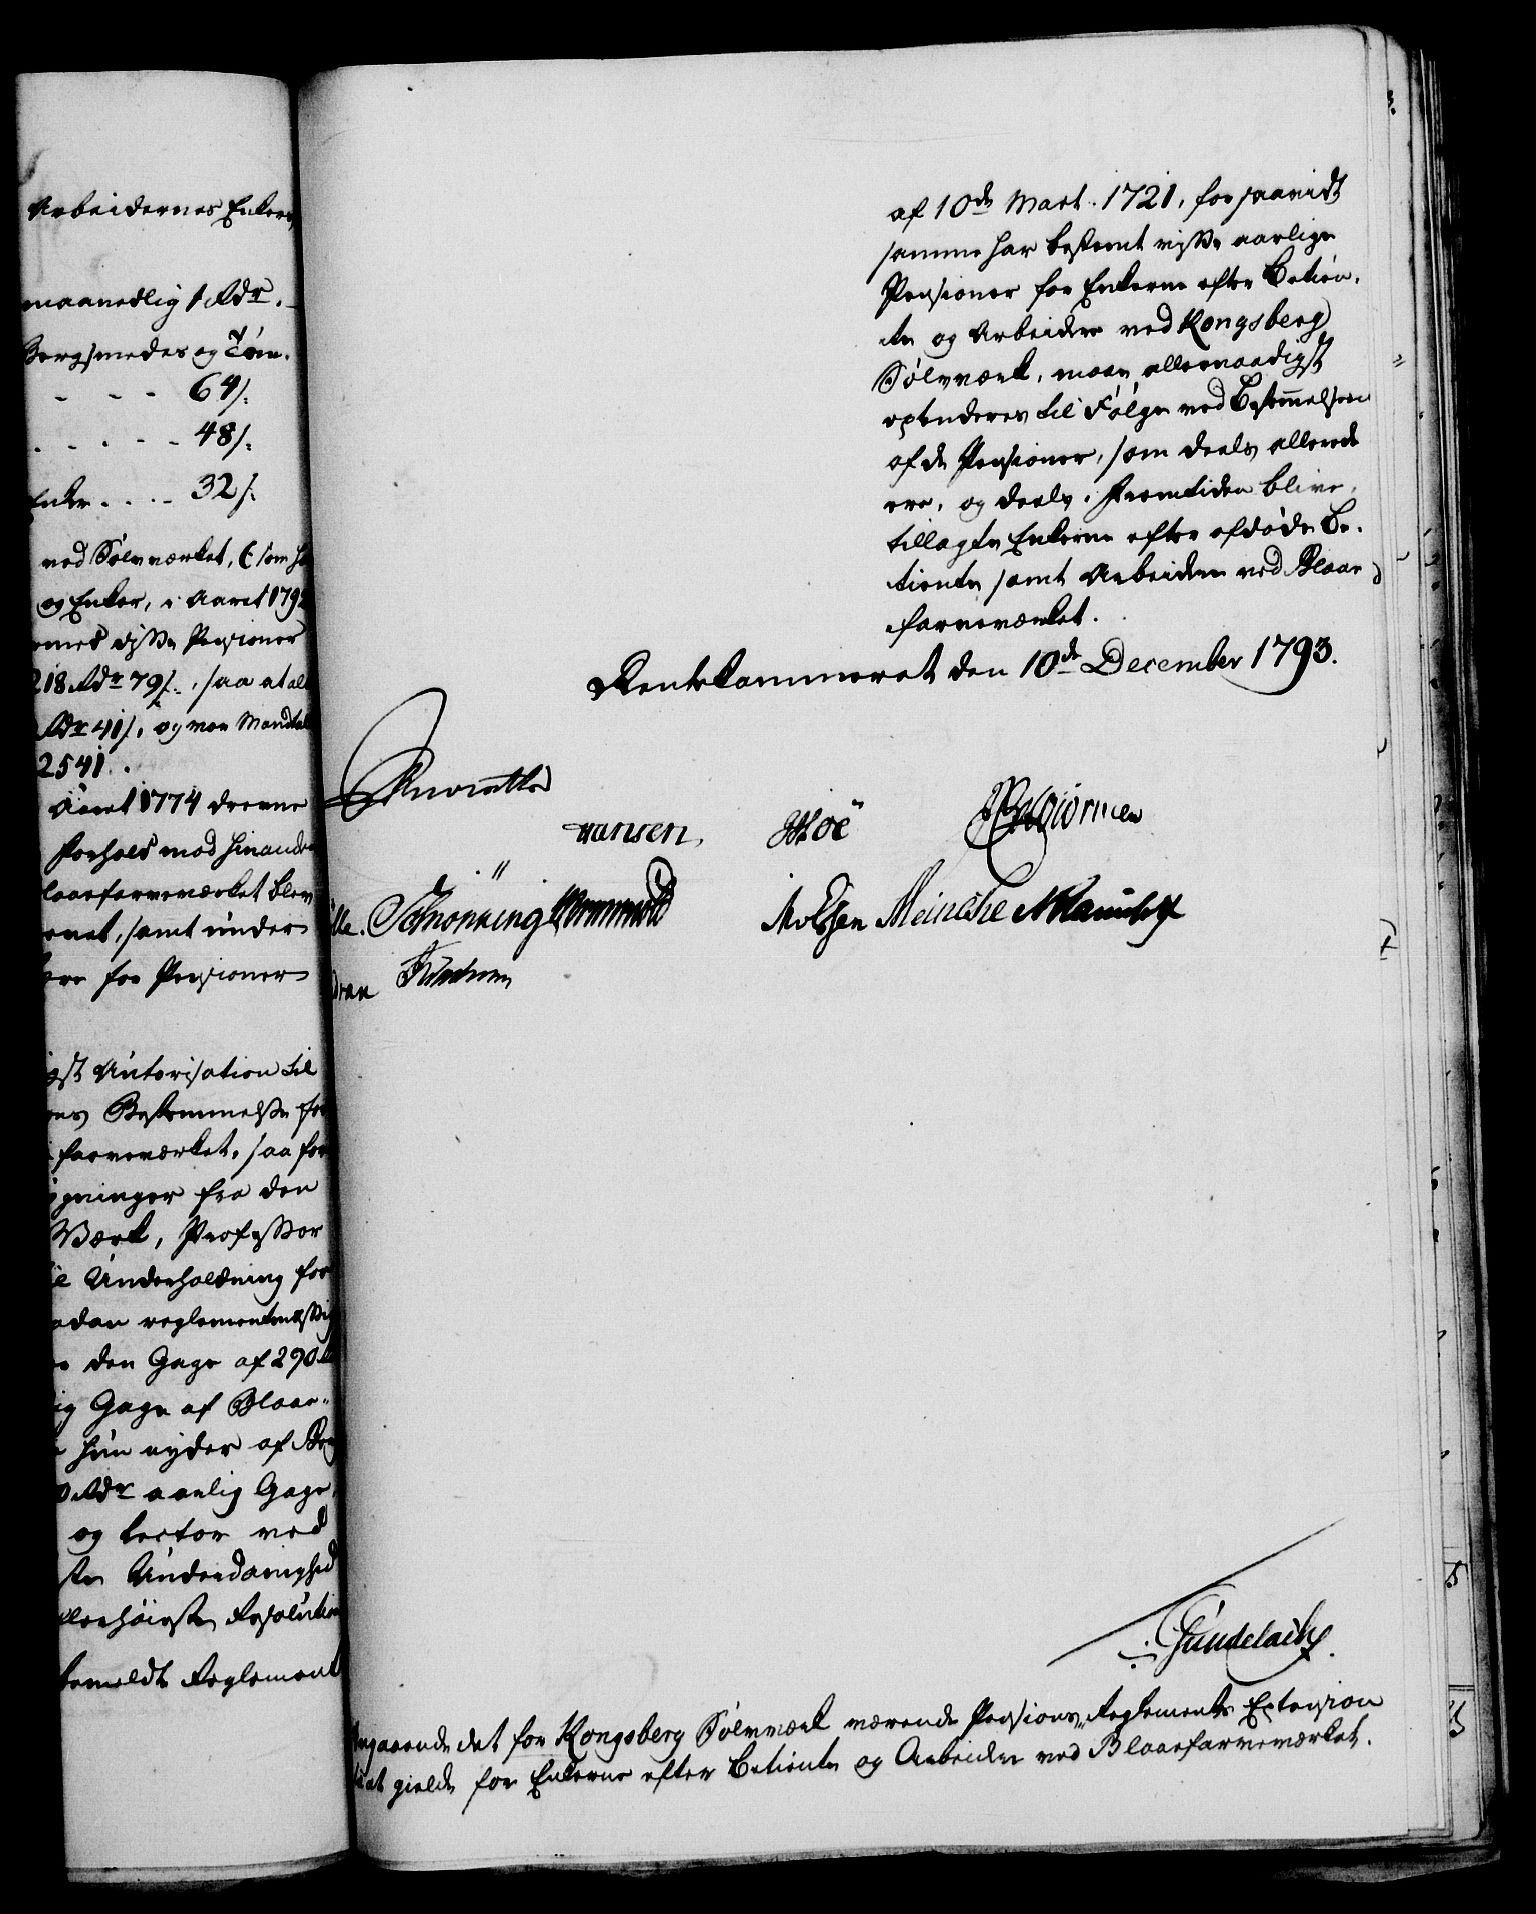 Arbeidernes Enker,
maanedlig 1 Rdr.
Bergsmedes og Töm-
- - - 64 s:
- - - - - 48 s:
Enker - - - - 32 s:
ved Sølvværket, (som
og Enker, i Aaret 179
disse Pensioner
218 Rdr 79 s:, saa at al
Rdr 41 s, og var Mandtal
2541.
Aaret 1774 drevne
Forhold mod hinanden
laaefarveværket blev
samt under
for Pensioner
Autorisation til
Bestemmelse for
farveværket, saa for
gninger fra den
Værk, Professor
Underholdning for
adan reglementmæssig
den Gage af 290
ig Gage af Blaae-
hun nyder af
Rdr aarlig Gage,
og Lector ved
Underdanighed
allerhöieste Resolution
bemeldte Reglement
af 10de Mart. 1721, forsaavidt
samme har bestemt visse aarlige
Pensioner for Enkerne efter Betien-
te og Arbeidere ved Kongsberg
Sölvværk, maae allernaadigst
extenderes til Fölge ved Bestemmelsen
af de Pensioner, som deels allerede
ere, og deels i Fremtiden blive
tillagte Enkerne efter afdöde Be-
tiente samt Arbeidere ved Blaae-
farveværket.
Rentekammeret den 10de December 1793.
Hansen.
Schönning Wormskiold
Meincke
Gundelach.
Angaaende det for Kongsberg Sölvværk værende Pensions-Reglements Extension
til at gielde for Enkerne efter Betiente og Arbeidere ved Blaaefarveværket.